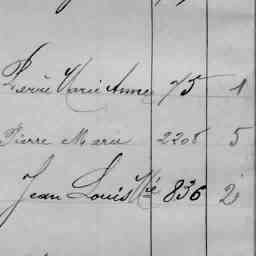 Pierre Marie Anne 75 1
Pierre Marie 2208 5
Jean Louis Mie 836 2